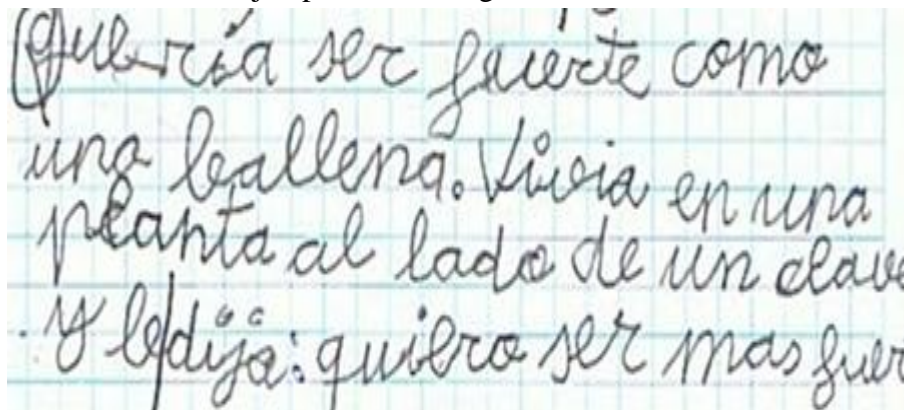 Quería ser fuerte como
una ballena. Vivia en una
planta al lado de un clave
y le dijo: quiero ser mas fuer